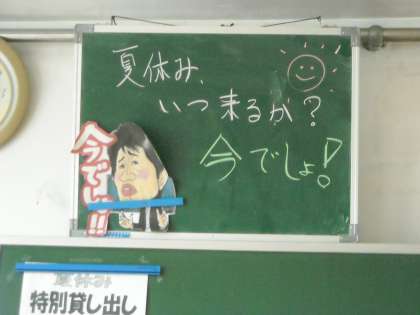 夏休み、
いつ来るか？
今でしょ！
今でしょ!!
夏休み
特別貸し出し